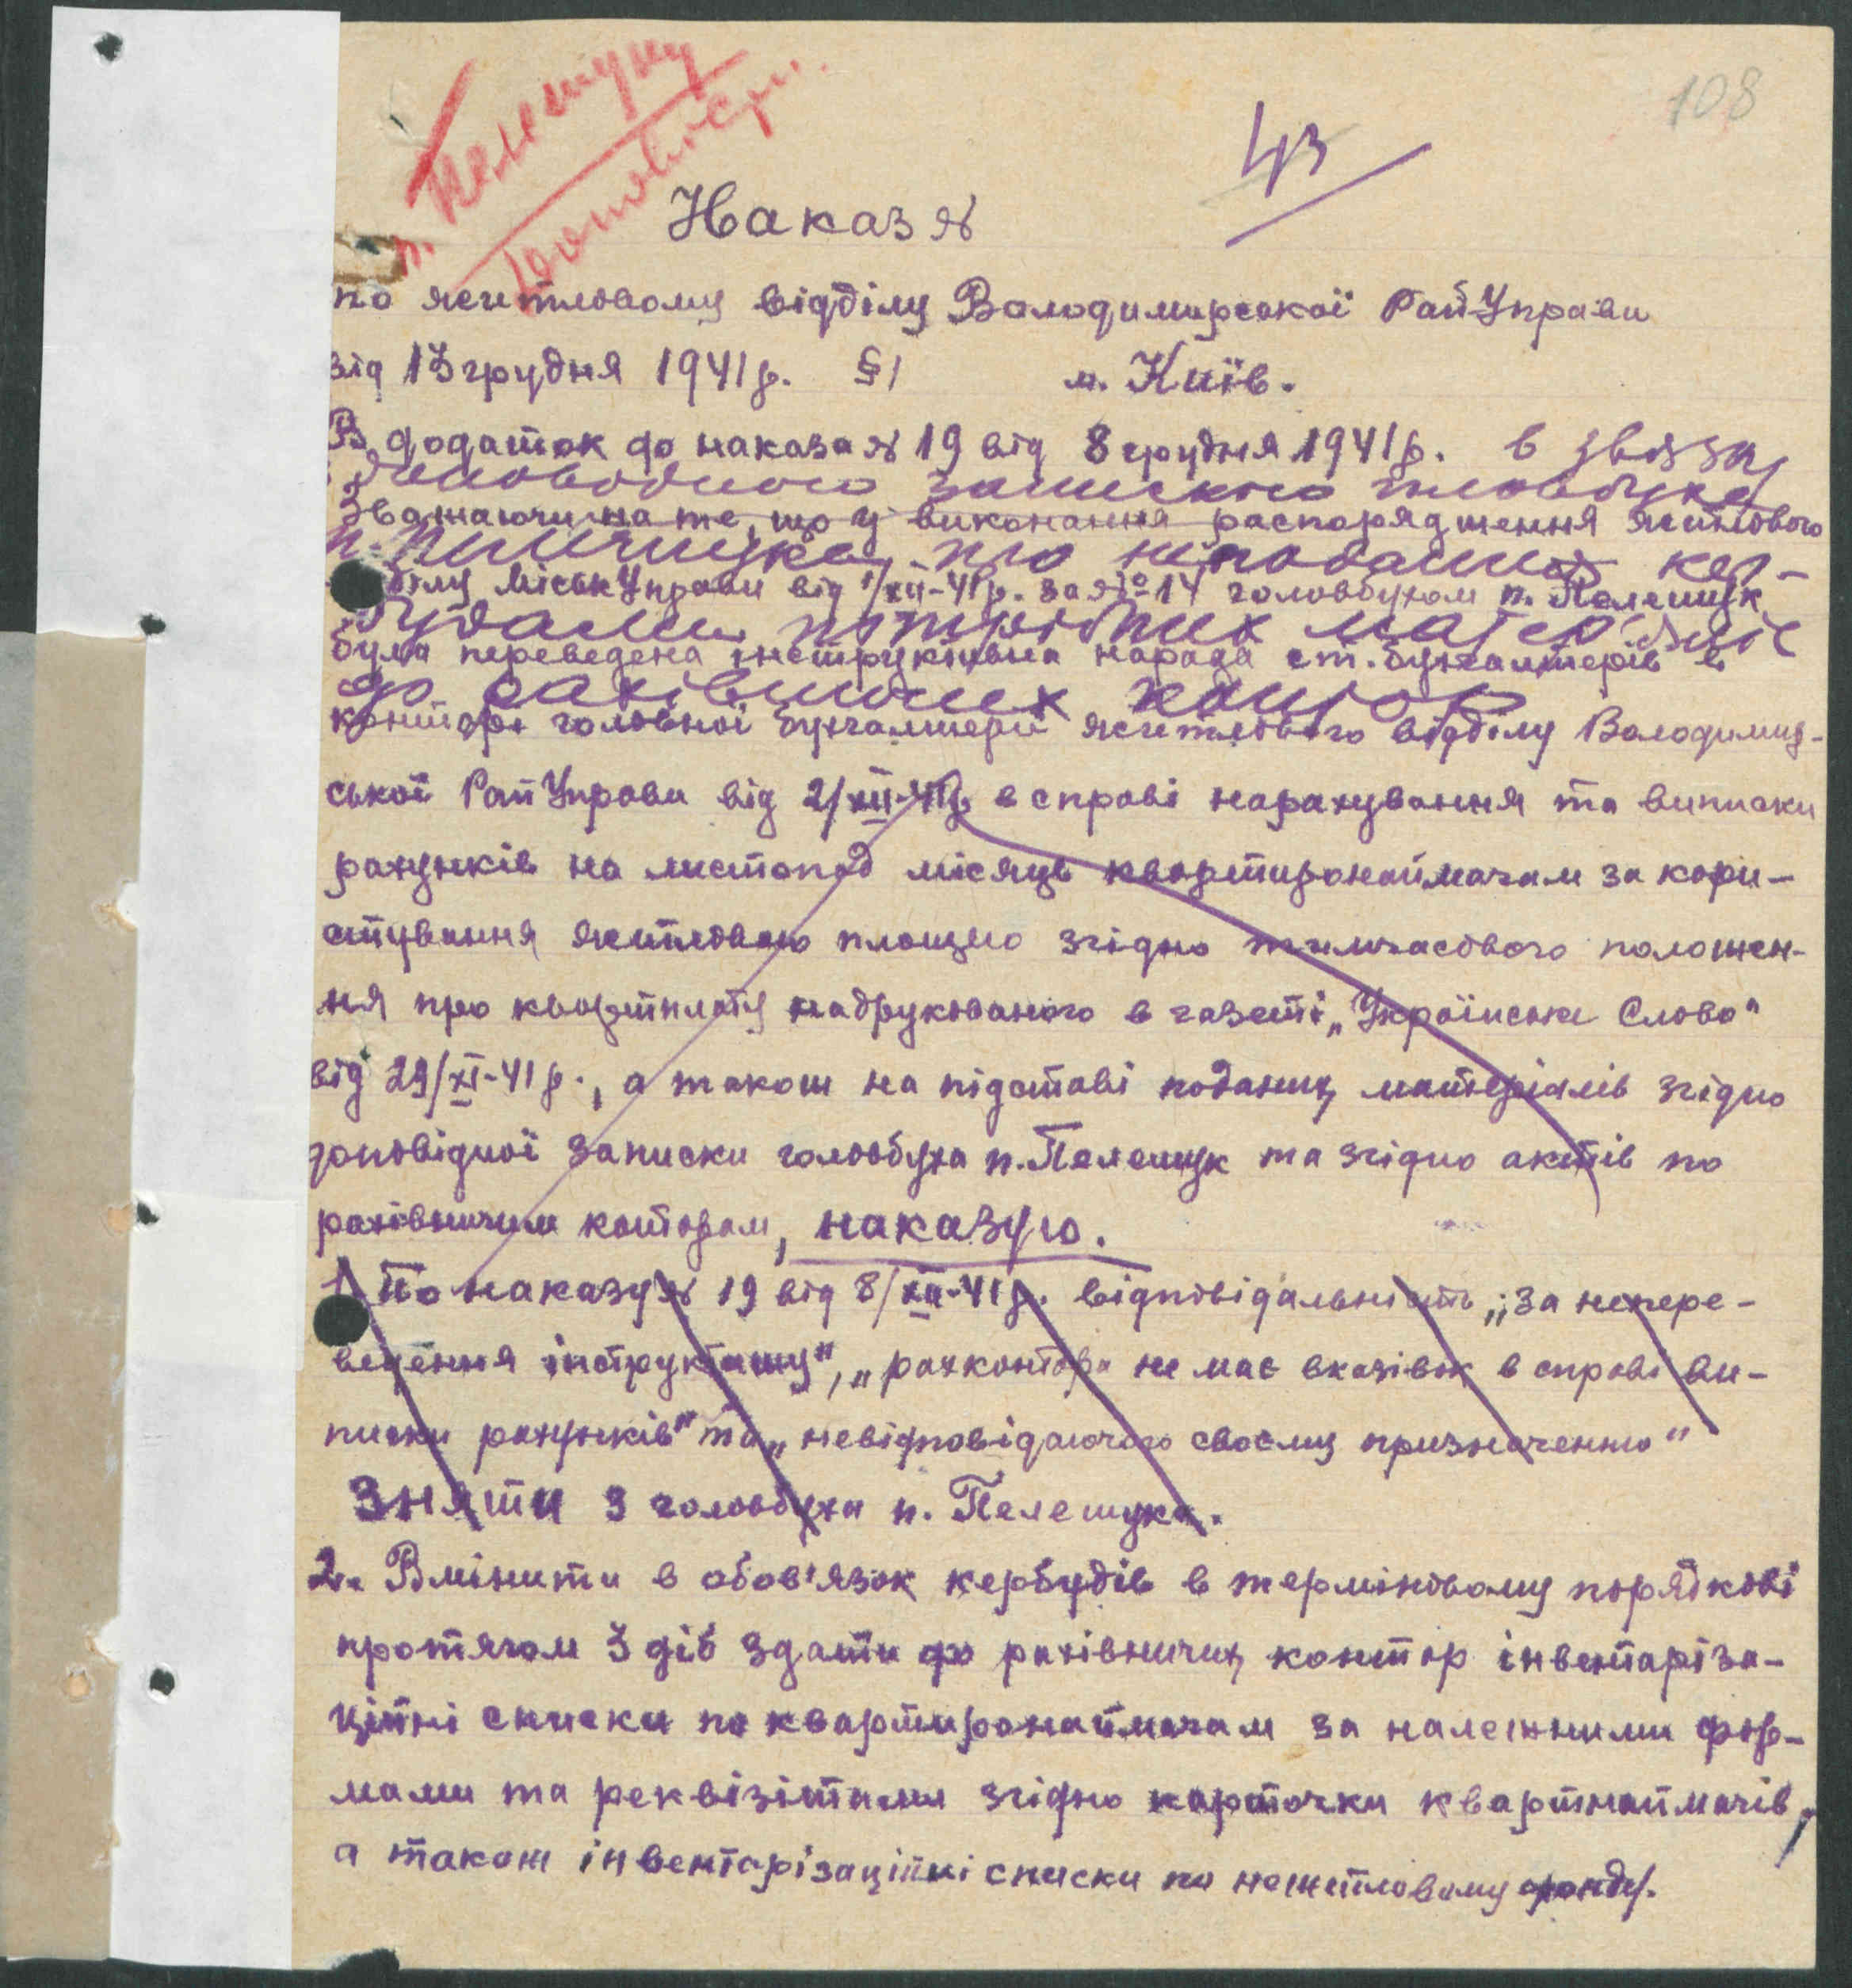 108
43
п. Пелешуку
Наказ №
по житловому відділу Володимирської РайУправи
від 13 грудня 1941 р. §1 м. Київ.
В додаток до наказа № 19 від 8 грудня 1941 р. в звязку
Зважаючи на те, що у виконання распорядження житлового
п. Пелешука, про неподання кер-
ділу МіськУправи від 1/XII-41 р. за № 14 головбухом п. Пелешук
будами потрібних матеріалів
була переведена інструктивна нарада ст. бухгалтерів в
до рахівничих контор
конторі головної бухгалтерії житлового відділу Володимир-
ської РайУправи від 2/XII-41 р. в справі нарахування та виписки
рахунків на листопад місяць квартиронаймачам за кори-
стування житловою площею згідно тимчасового положен-
ня про квартплату надрукованого в газеті „Українське Слово"
від 29/XI-41 р., а також на підставі поданих матеріалів згідно
доповідної записки головбуха п. Пелешук та згідно актів по
рахівничим конторам, наказую.
1 По наказу № 19 від 8/XII-41 р. відповідальність „за непере-
ведення інструктажу", „рахконтора не має вказівок в справі ви-
писки рахунків" та „невідповідаючого своєму призначенню"
Зняти з головбуха п. Пелешука.
2. Вмінити в обов'язок кербудів в терміновому порядкові
протягом 3 діб здати до рахівничих контор інвентаріза-
ційні списки по квартиронаймачам за належними фор-
мами та реквізітами згідно карточки квартнаймачів,
а також інвентарізаційні списки по нежитловому фонду.